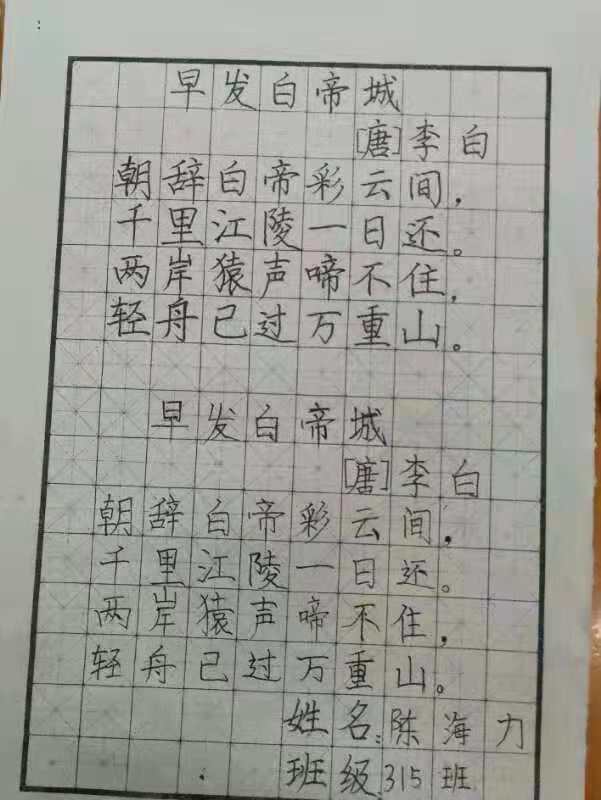 早发白帝城
[唐]李白
朝辞白帝彩云间，
千里江陵一日还。
两岸猿声啼不住，
轻舟已过万重山。
早发白帝城
[唐]李白
朝辞白帝彩云间，
千里江陵一日还。
两岸猿声啼不住，
轻舟已过万重山。
姓名:陈海力
班级:315班